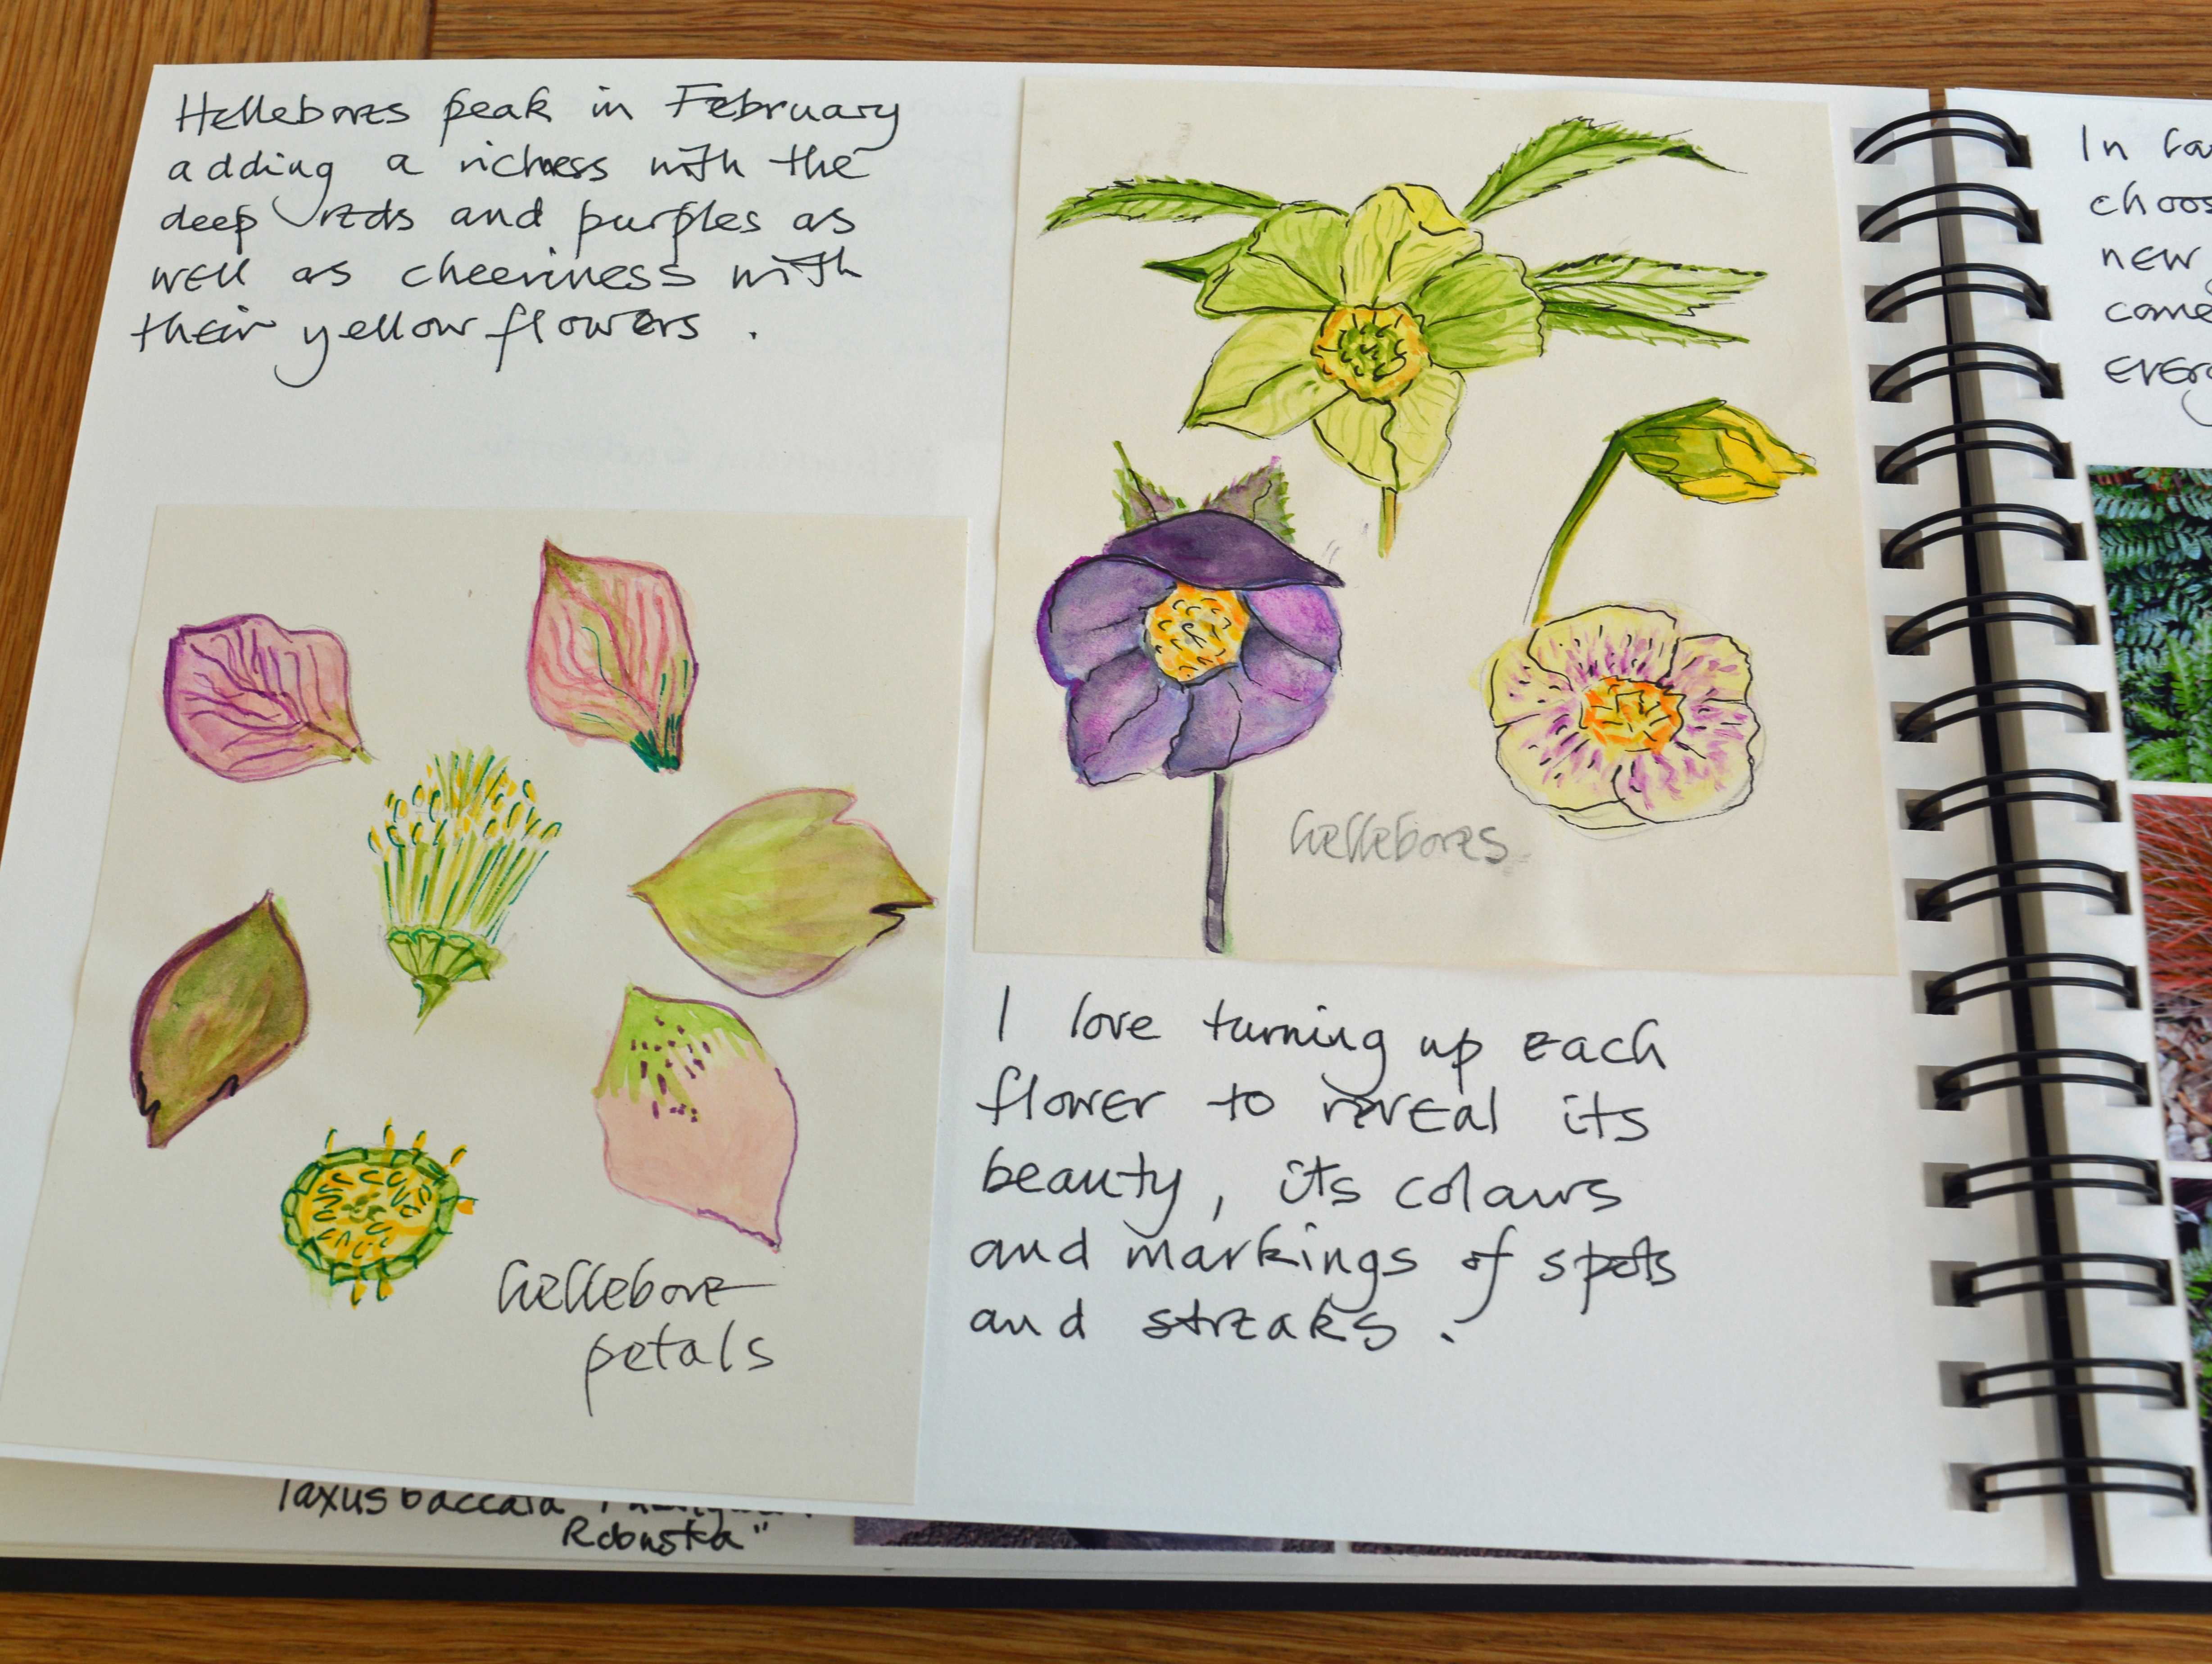 Hellebores peak in February
adding a richness with the
deep reds and purples as
well as cheeriness with
their yellow flowers .
hellebores
hellebore
petals
I love turning up each
flower to reveal its
beauty, its colours
and markings of spots
and streaks .
Taxus baccata
Robusta"
In
choos
new
come
everg